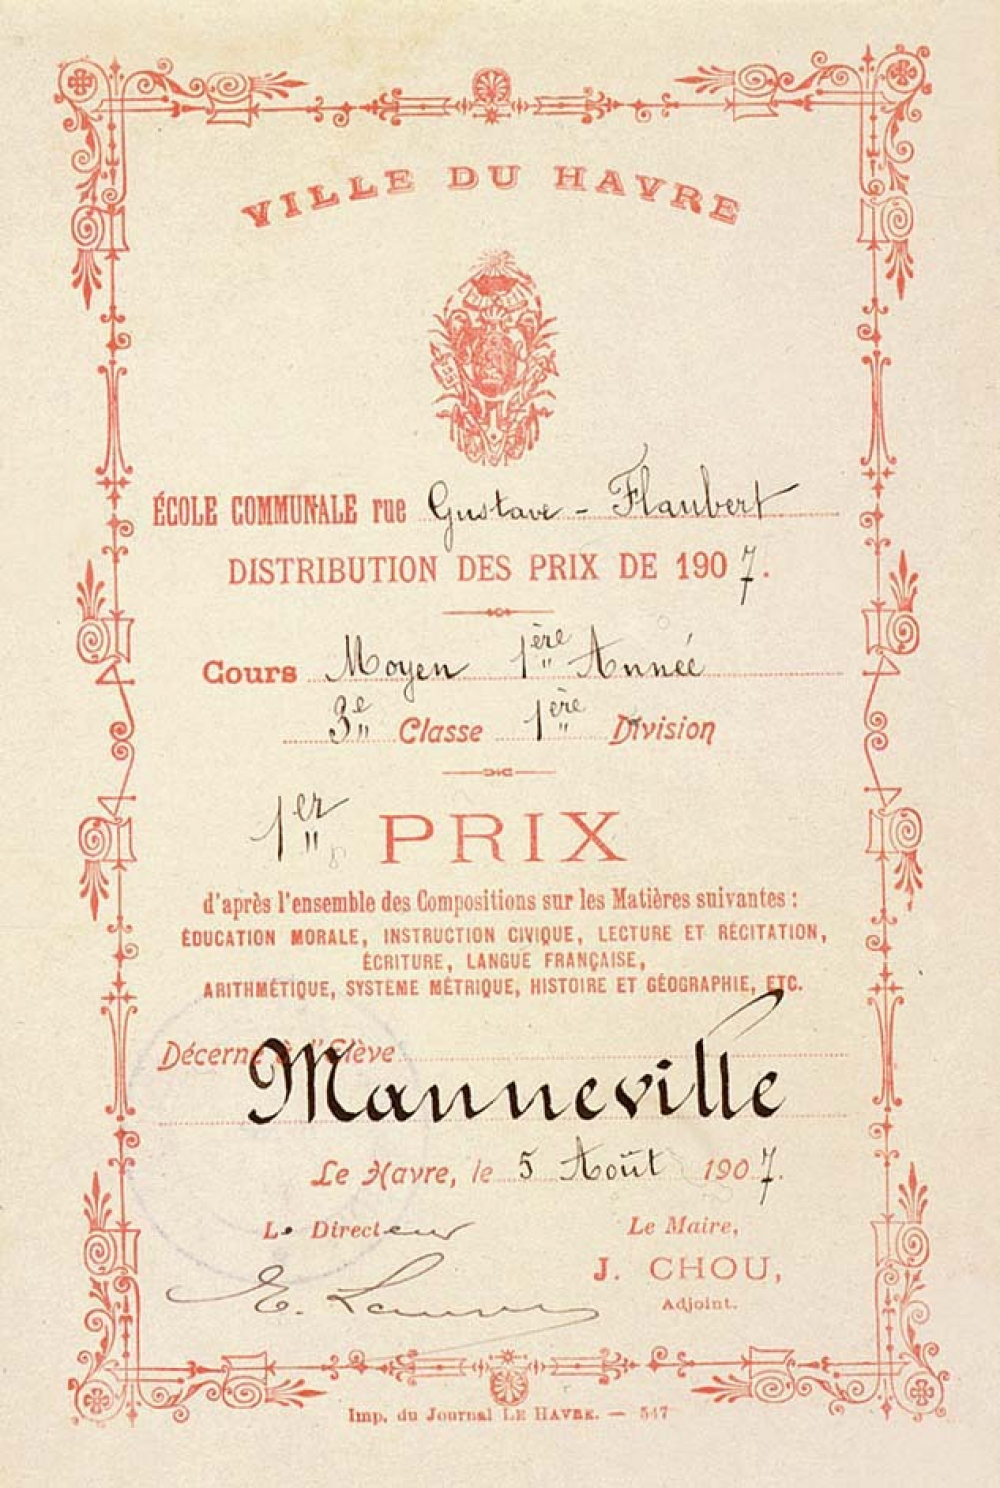 VILLE DU HAVRE
ÉCOLE COMMUNALE rue Gustave-Flaubert
DISTRIBUTION DES PRIX DE 1907.
Cours Moyen 1ère Année
3e Classe 1ère Division
1er PRIX
d'après l'ensemble des Compositions sur les Matières suivantes :
ÉDUCATION MORALE, INSTRUCTION CIVIQUE, LECTURE ET RÉCITATION,
ÉCRITURE, LANGUE FRANÇAISE,
ARITHMÉTIQUE, SYSTÈME MÉTRIQUE, HISTOIRE ET GÉOGRAPHIE, ETC.
Décerné à l'Elève
Manneville
Le Havre, le 5 Août 1907.
Le Directeur
Le Maire,
E.
J. CHOU,
Adjoint.
Imp. du Journal LE HAVRE. — 547